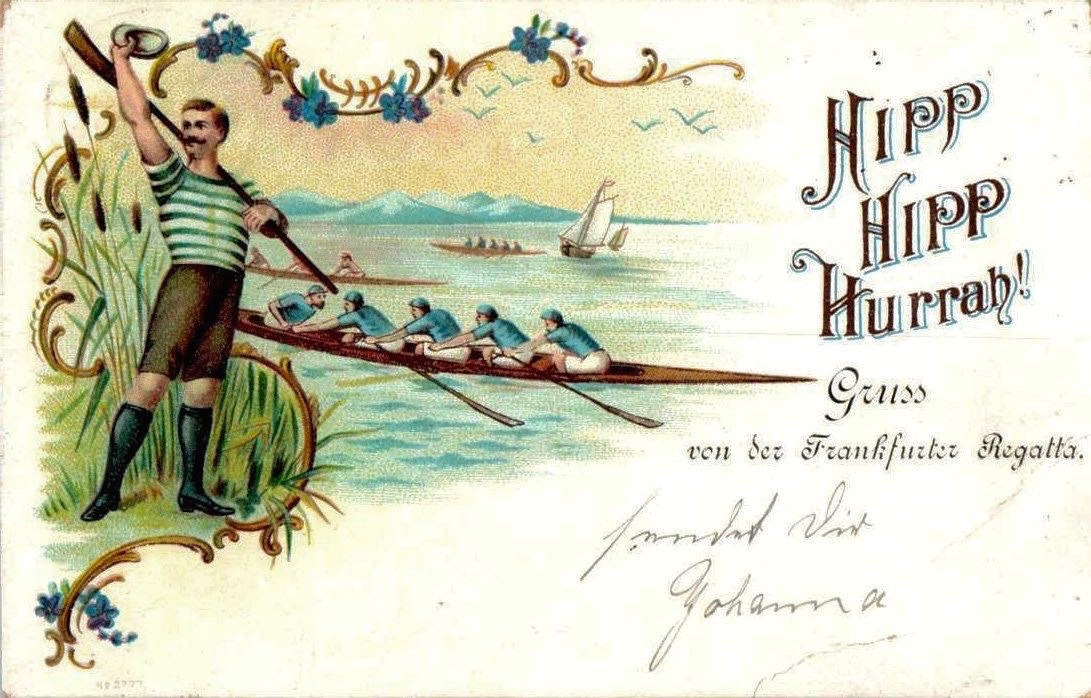 Hipp
Hipp
Hurrah!
Gruss
von der Frankfurter Regatta.
sendet Dir
Johanna